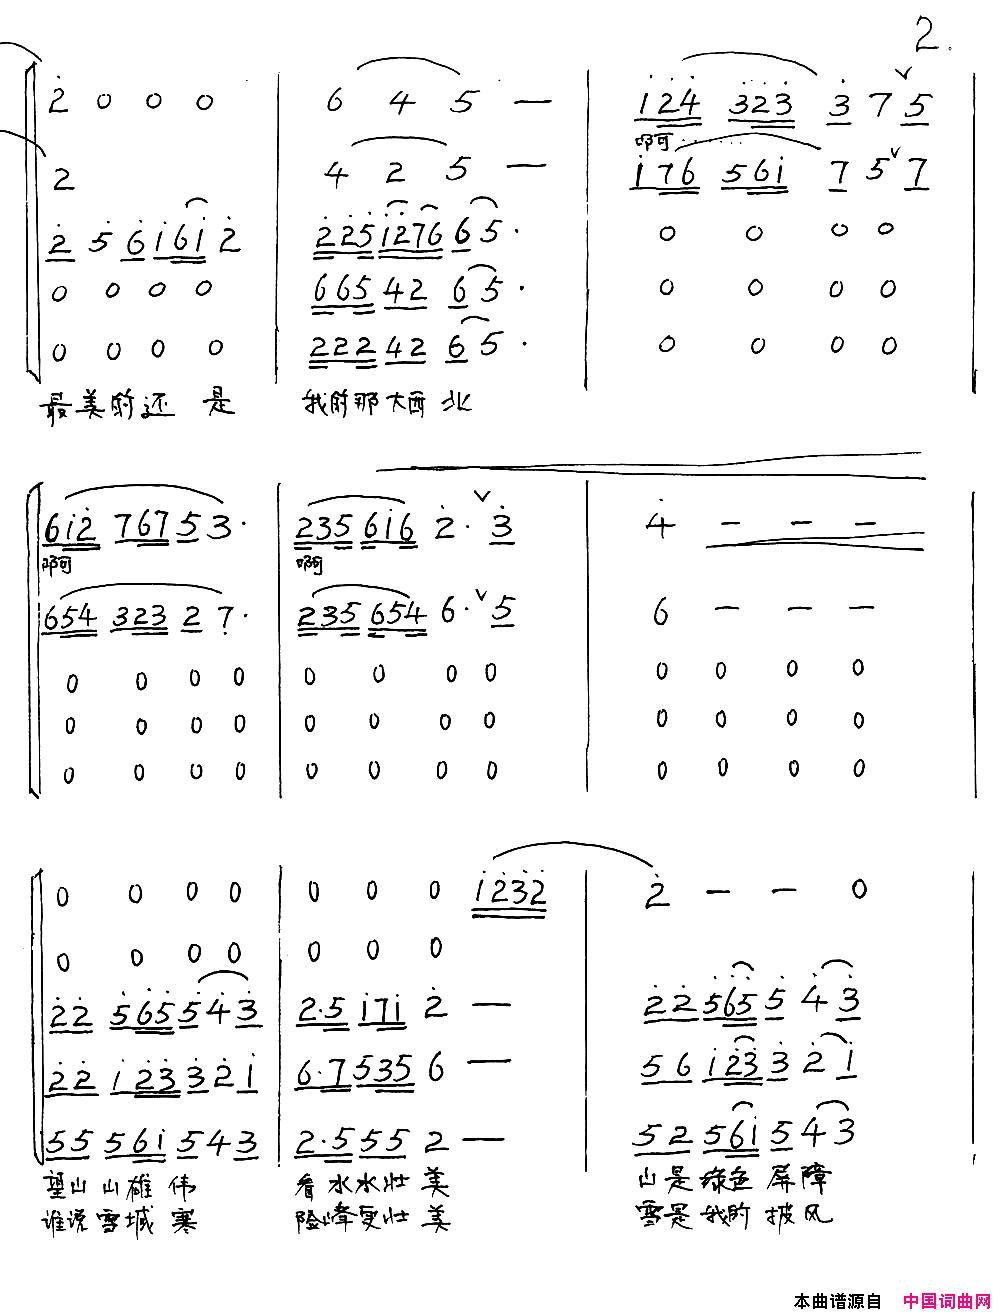 2.
2 0 0 0 6 4 5 — 124 323 3 7 5
啊
2 4 2 5 — 176 561 7 5 7
2 5 6 1 61 2 225 1276 6 5 · 0 0 0 0
0 0 0 0 665 42 6 5 · 0 0 0 0
0 0 0 0 222 42 6 5 · 0 0 0 0
最美的还是 我的那大西北
612 767 5 3 · 235 616 2 · 3 4 — — —
啊 啊
654 323 2 7 · 235 654 6 · 5 6 — — —
0 0 0 0 0 0 0 0 0 0 0 0
0 0 0 0 0 0 0 0 0 0 0 0
0 0 0 0 0 0 0 0 0 0 0 0
0 0 0 0 0 0 0 1232 2 — — 0
0 0 0 0 0 0 0
22 565 5 4 3 2·5 171 2 — 22 565 5 4 3
22 123 3 3 2 1 6·7 535 6 — 56 123 3 2 1
55 561 5 4 3 2·5 55 2 — 52 561 5 4 3
望山山雄伟 看水水壮美 山是绿色屏障
谁说雪城寒 险峰更壮美 雪是我的披风
本曲谱源自 中国词曲网